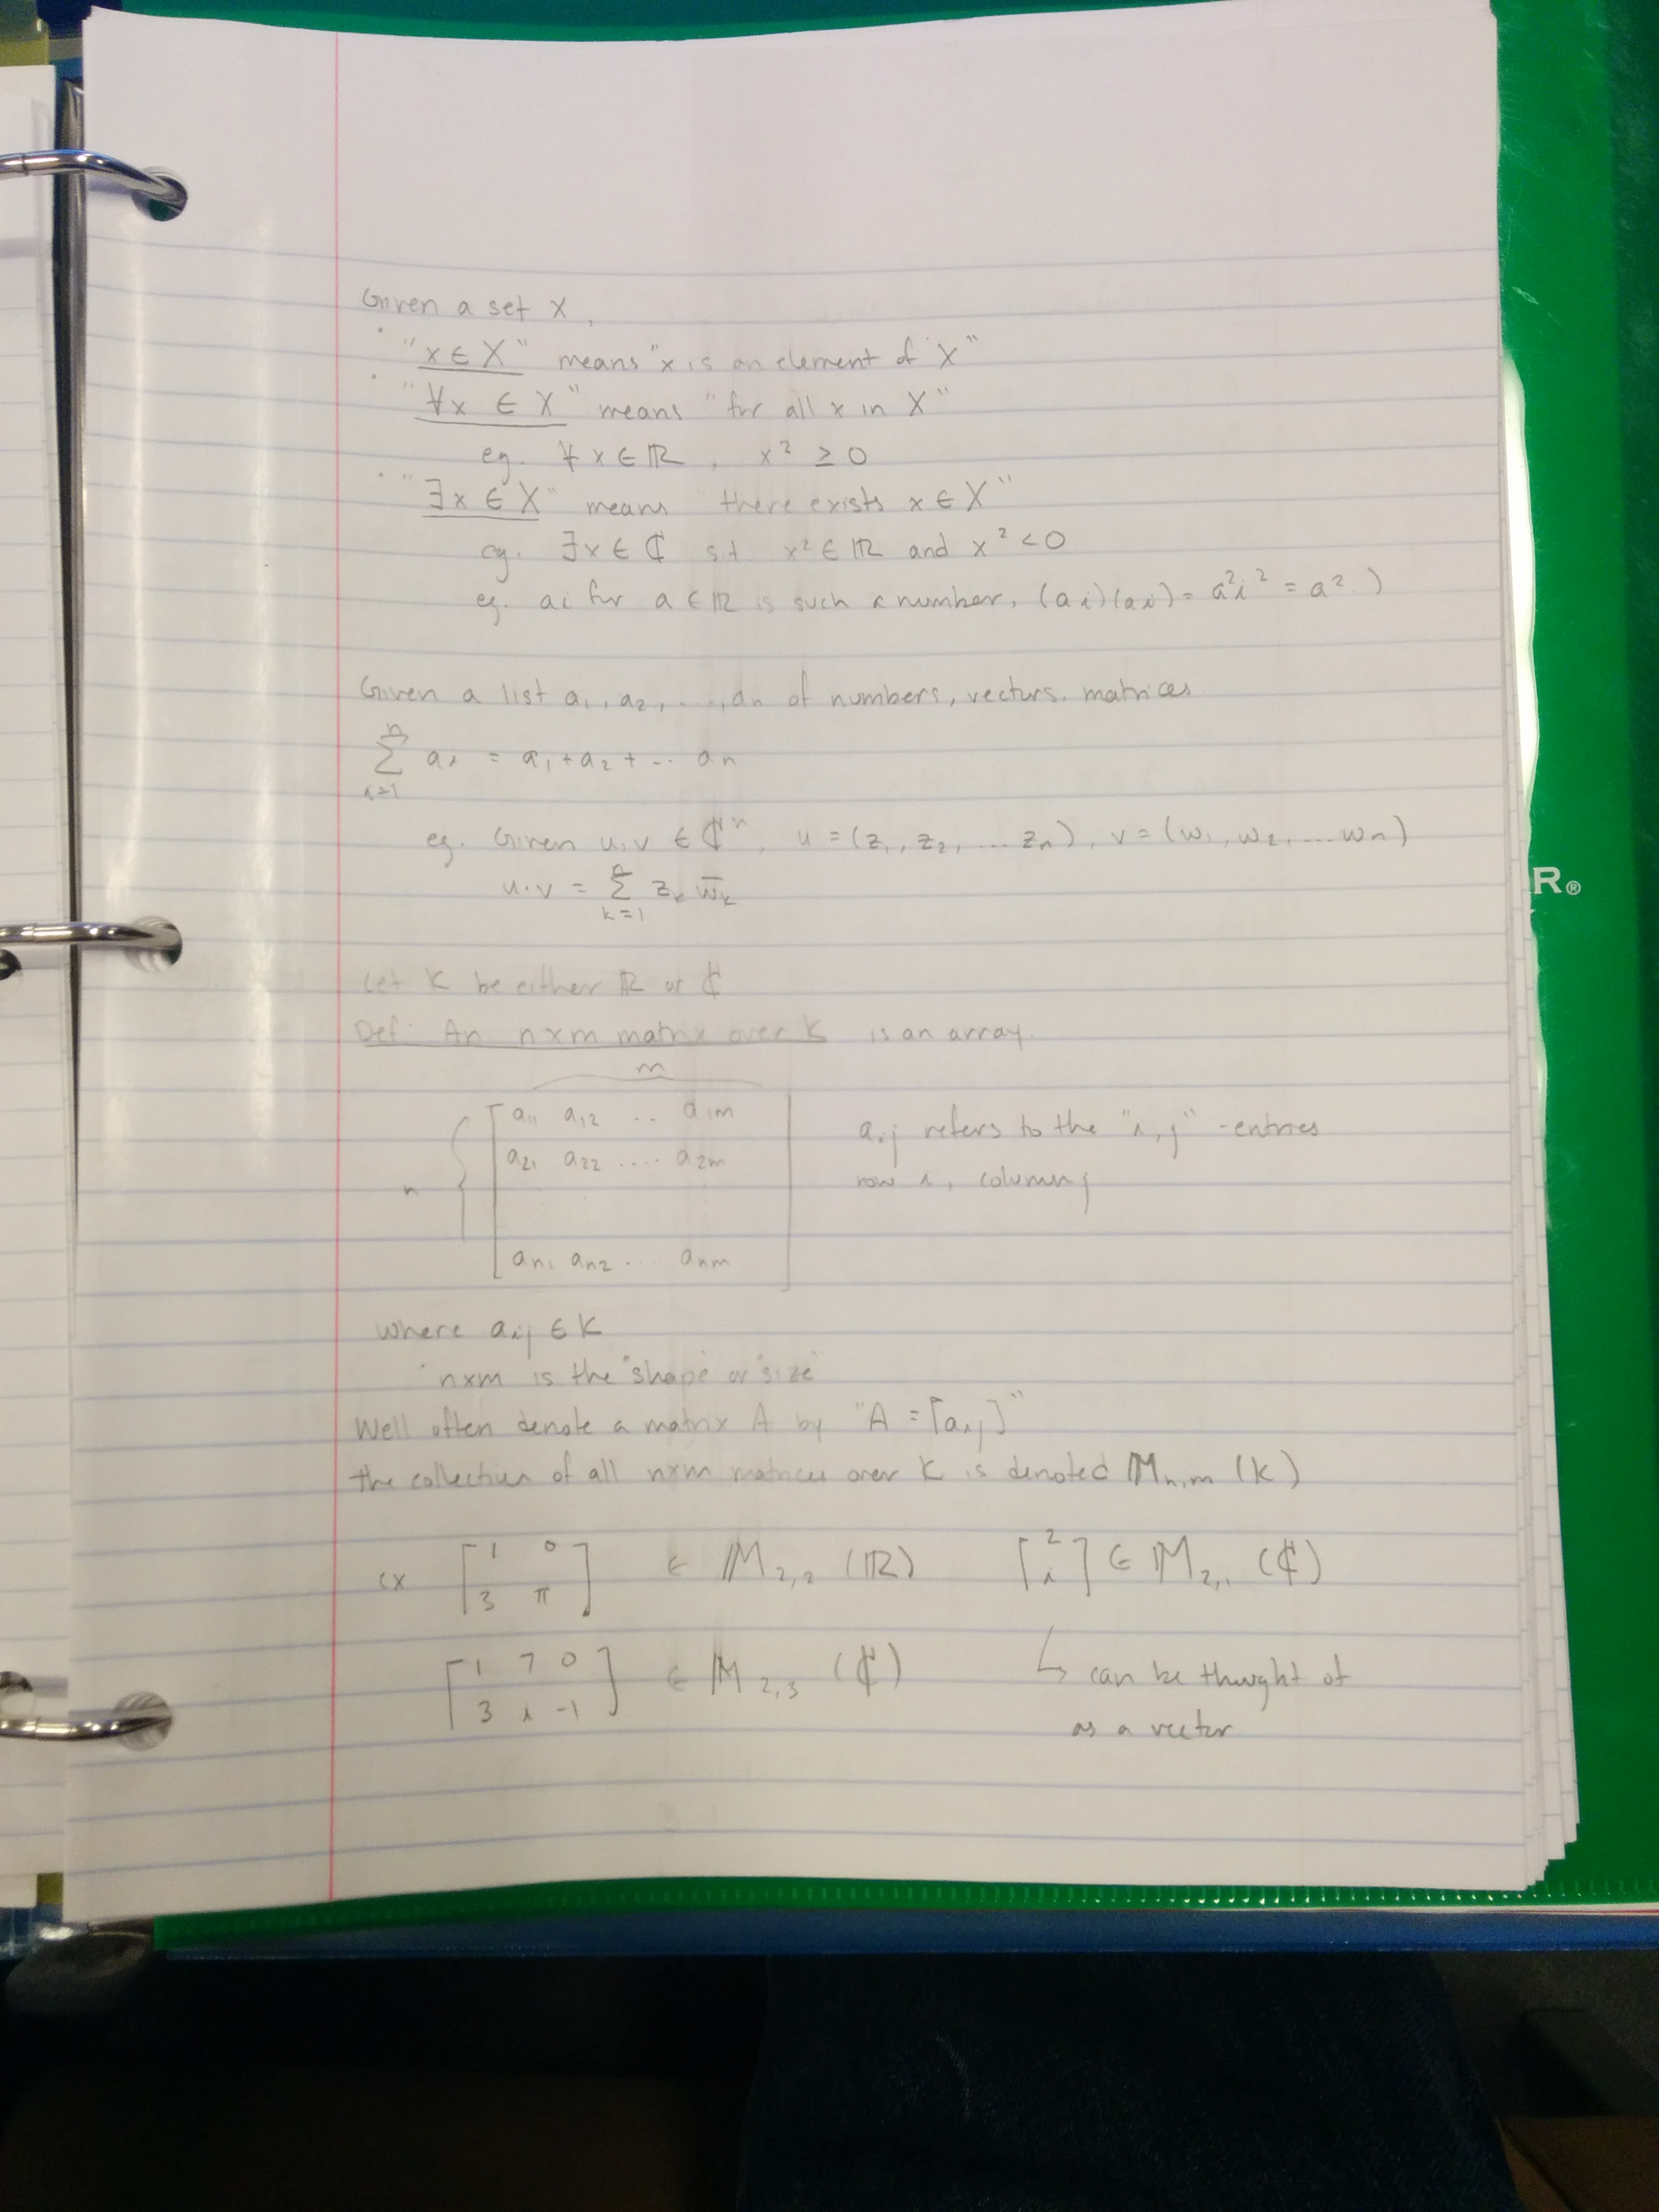 Given a set X,
· "x ∈ X" means "x is an element of X"
· "∀x ∈ X" means "for all x in X"
eg. ∀x ∈ ℝ, x² ≥ 0
· "∃x ∈ X" means "there exists x ∈ X"
eg. ∃x ∈ ℂ s.t x² ∈ ℝ and x² < 0
eg. ai for a ∈ ℝ is such a number, (ai)(ai) = a²i² = a²)
Given a list a₁, a₂, ..., aₙ of numbers, vectors. matrices
n
Σ aᵢ = a₁ + a₂ + ... aₙ
i=1
eg. Given u,v ∈ ℂⁿ, u = (z₁, z₂, ... zₙ), v = (w₁, w₂, ... wₙ)
n
u·v = Σ zₖ w̄ₖ
k=1
Let K be either ℝ or ℂ
Def: An nxm matrix over K is an array.
m
a₁₁ a₁₂ .. a₁ₘ
aᵢⱼ refers to the "i,j" -entries
a₂₁ a₂₂ .... a₂ₘ
n
row i, column j
aₙ₁ aₙ₂ ... aₙₘ
where aᵢⱼ ∈ K
· nxm is the "shape or "size"
Well often denote a matrix A by "A = [aᵢⱼ]"
the collection of all nxm matrices over K is denoted 𝕄ₙ,ₘ (K)
ex [1 0; 3 π] ∈ 𝕄₂,₂ (ℝ) [2; i] ∈ 𝕄₂,₁ (ℂ)
[1 7 0; 3 i -1] ∈ 𝕄₂,₃ (ℂ) ↳ can be thought of
as a vector
R®